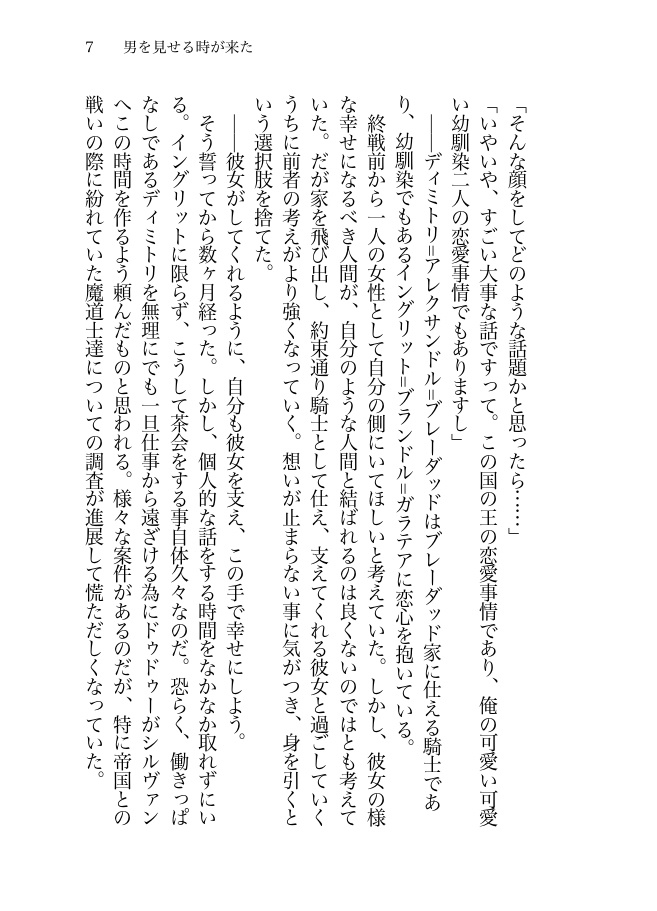 7　男を見せる時が来た
「そんな顔をしてどのような話題かと思ったら……」
「いやいや、すごい大事な話ですって。この国の王の恋愛事情であり、俺の可愛い可愛
い幼馴染二人の恋愛事情でもありますし」
　――ディミトリ＝アレクサンドル＝ブレーダッドはブレーダッド家に仕える騎士であ
り、幼馴染でもあるイングリット＝ブランドル＝ガラテアに恋心を抱いている。
　終戦前から一人の女性として自分の側にいてほしいと考えていた。しかし、彼女の様
な幸せになるべき人間が、自分のような人間と結ばれるのは良くないのではとも考えて
いた。だが家を飛び出し、約束通り騎士として仕え、支えてくれる彼女と過ごしていく
うちに前者の考えがより強くなっていく。想いが止まらない事に気がつき、身を引くと
いう選択肢を捨てた。
　――彼女がしてくれるように、自分も彼女を支え、この手で幸せにしよう。
　そう誓ってから数ヶ月経った。しかし、個人的な話をする時間をなかなか取れずにい
る。イングリットに限らず、こうして茶会をする事自体久々なのだ。恐らく、働きっぱ
なしであるディミトリを無理にでも一旦仕事から遠ざける為にドゥドゥーがシルヴァン
へこの時間を作るよう頼んだものと思われる。様々な案件があるのだが、特に帝国との
戦いの際に紛れていた魔道士達についての調査が進展して慌ただしくなっていた。